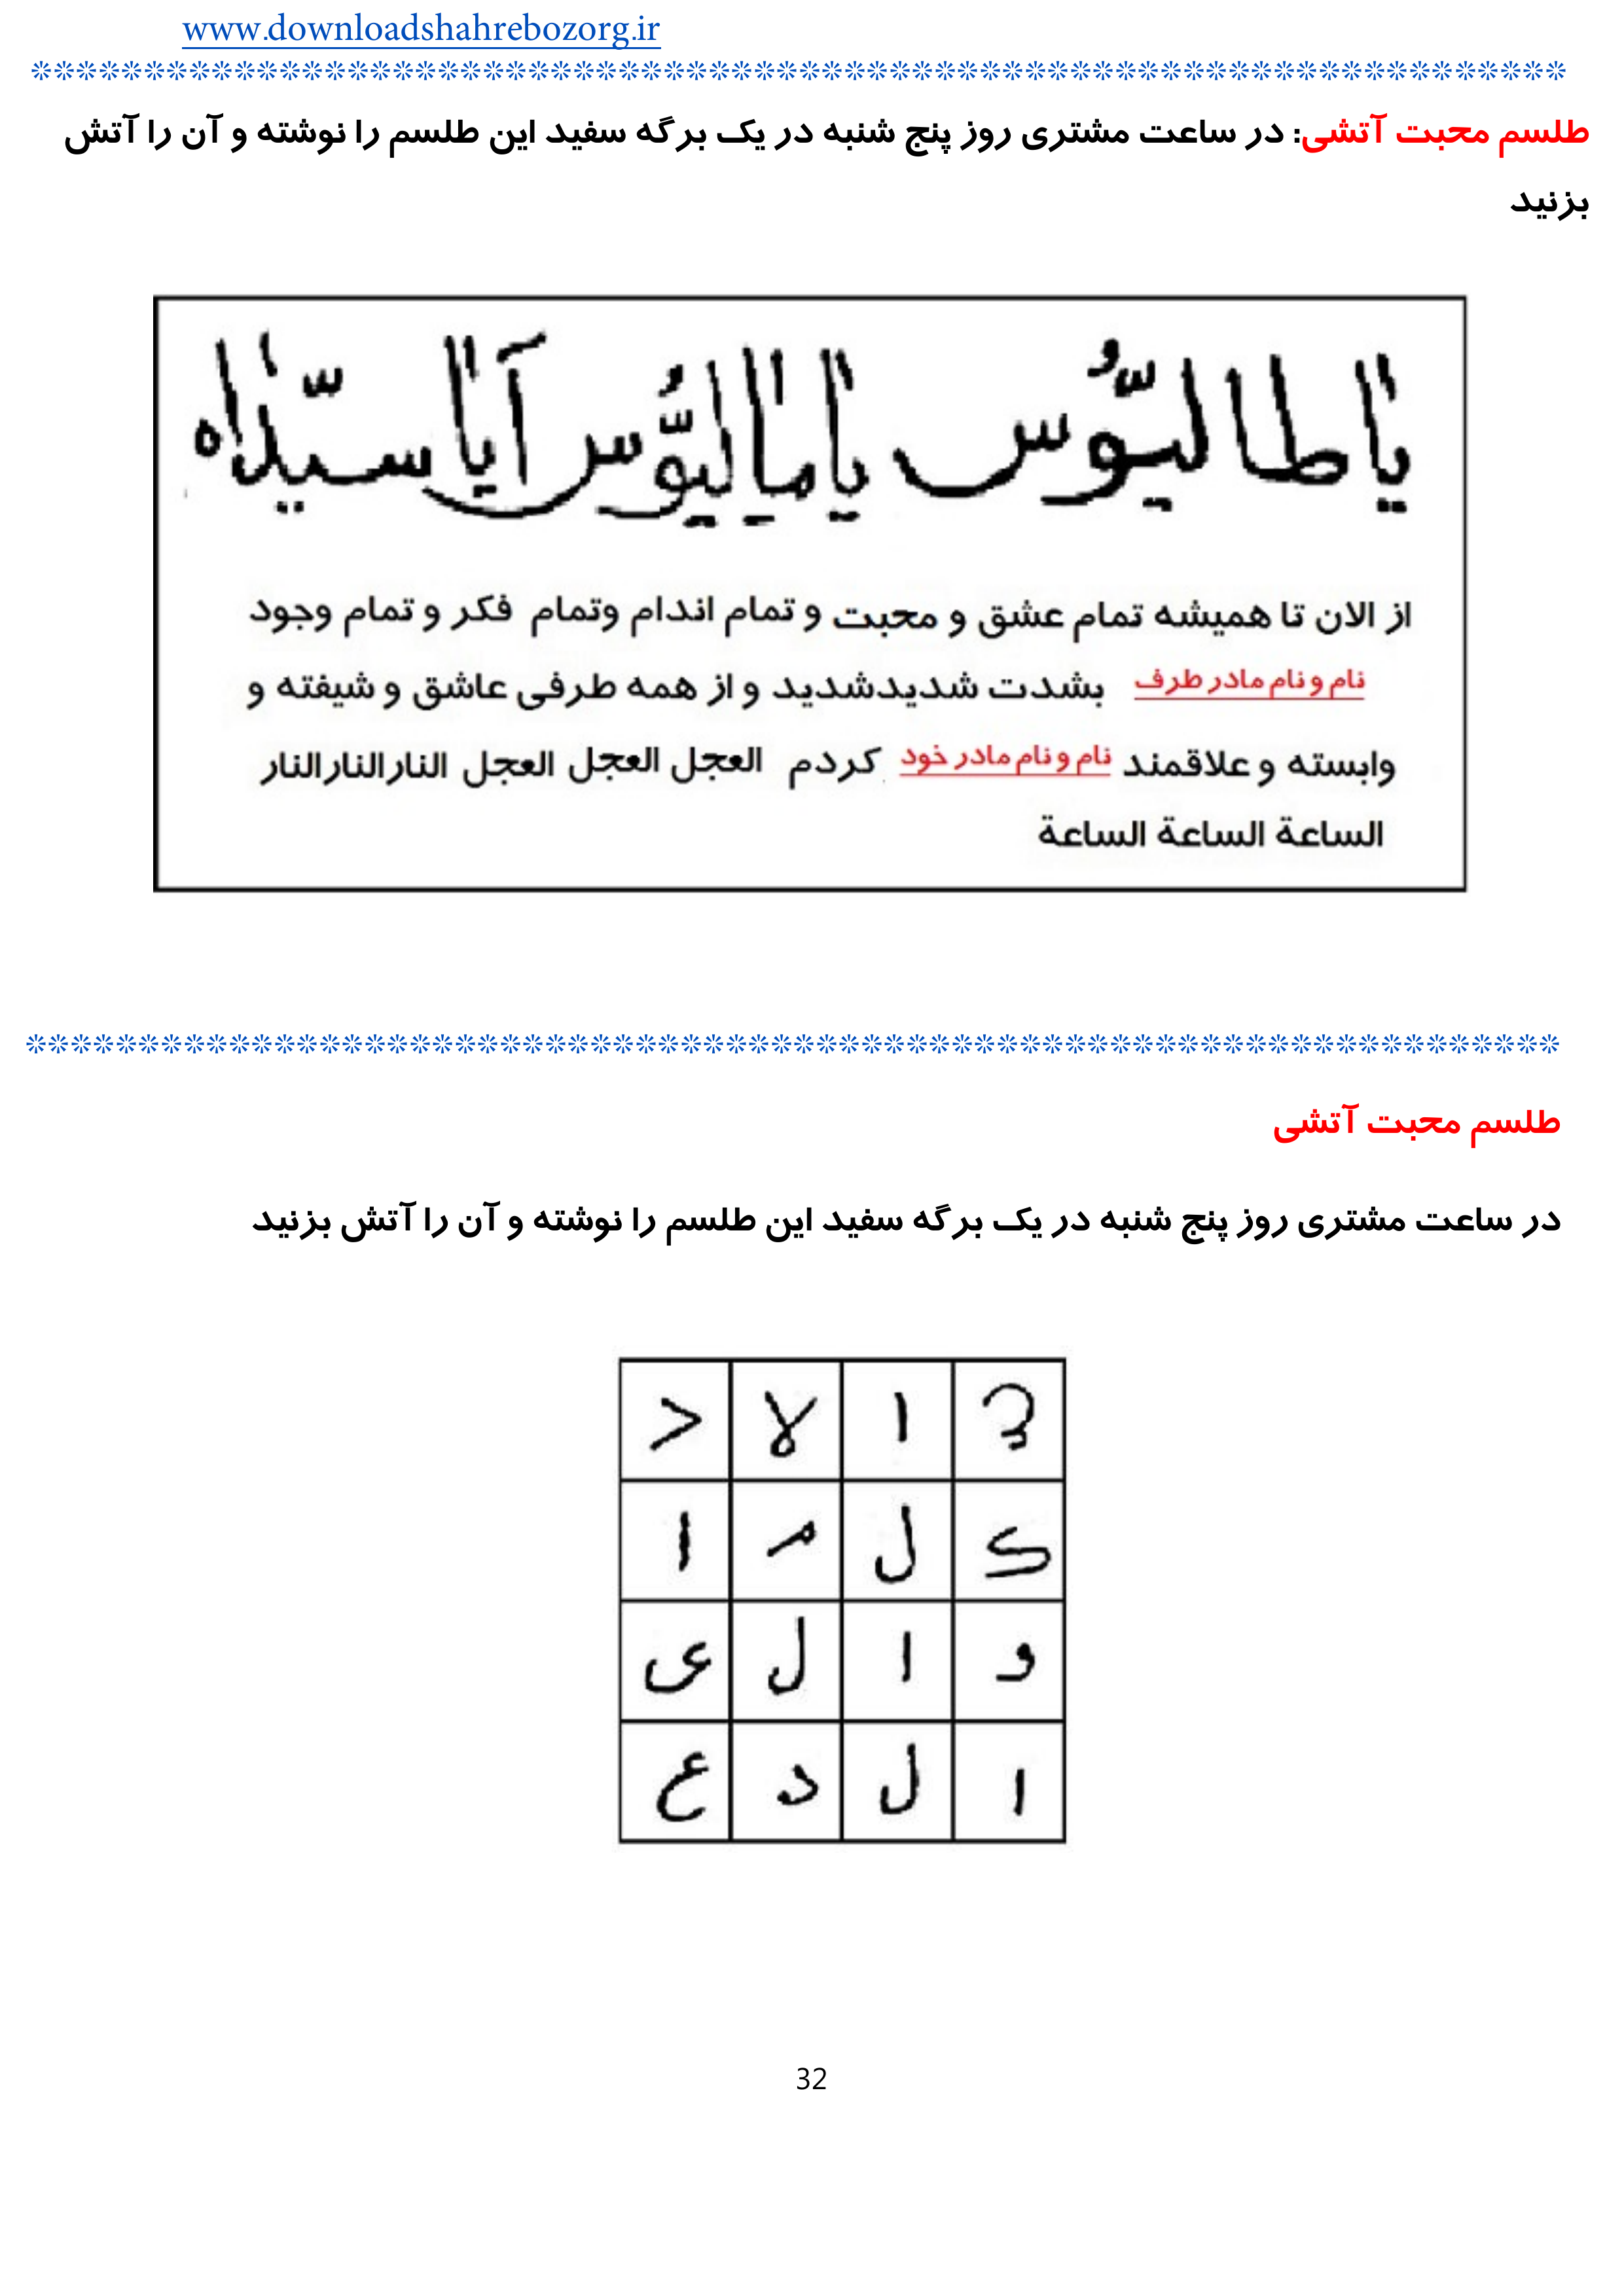 www.downloadshahrebozorg.ir
طلسم محبت آتشی: در ساعت مشتری روز پنج شنبه در یک برگه سفید این طلسم را نوشته و آن را آتش
بزنید
یا طالیوس یا مالیوس آیا سیداه
از الان تا همیشه تمام عشق و محبت و تمام اندام وتمام فکر و تمام وجود
نام و نام مادر طرف بشدت شدیدشدید و از همه طرفی عاشق و شیفته و
وابسته و علاقمند نام و نام مادر خود کردم العجل العجل العجل النارالنارالنار
الساعة الساعة الساعة
طلسم محبت آتشی
در ساعت مشتری روز پنج شنبه در یک برگه سفید این طلسم را نوشته و آن را آتش بزنید
ا لا
ک ل م ا
و ا ل ی
ا ل د ع
32